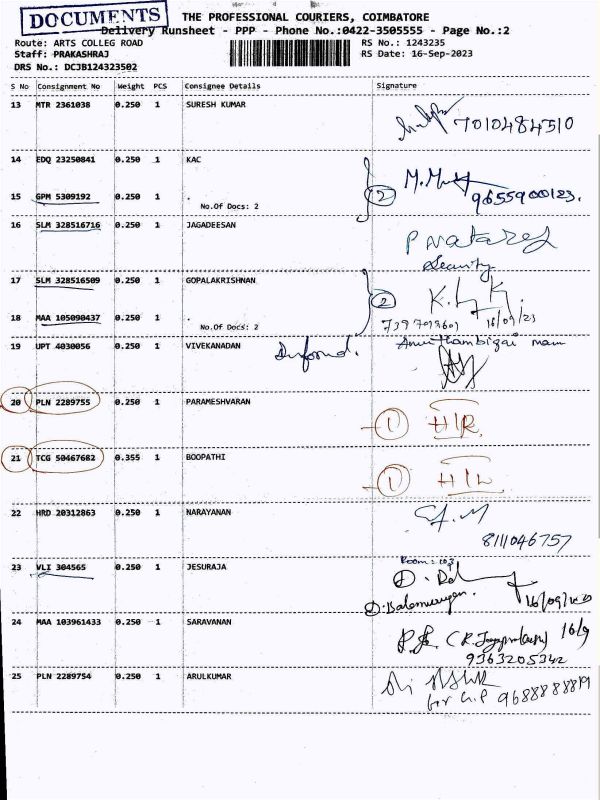 DOCUMENTS
THE PROFESSIONAL COURIERS, COIMBATORE
Delivery Runsheet - PPP - Phone No.:0422-3505555 - Page No.:2
Route: ARTS COLLEG ROAD RS No.: 1243235
Staff: PRAKASHRAJ RS Date: 16-Sep-2023
DRS No.: DCJB124323502
S No Consignment No Weight PCS Consignee Details Signature
13 MTR 2361038 0.250 1 SURESH KUMAR
7010484510
14 EDQ 23250841 0.250 1 KAC
15 GPM 5309192 0.250 1 . 2 9655900123.
No.Of Docs: 2
16 SLM 328516716 0.250 1 JAGADEESAN
Security
17 SLM 328516509 0.250 1 GOPALAKRISHNAN
2 K.
18 MAA 105090437 0.250 1 . 16/09/23
No.Of Docs: 2
19 UPT 4030056 0.250 1 VIVEKANADAN Inform'd.
20 PLN 2289755 0.250 1 PARAMESHVARAN
1
21 TCG 50467682 0.355 1 BOOPATHI
1
22 HRD 20312863 0.250 1 NARAYANAN
8111046757
23 VLI 304565 0.250 1 JESURAJA
D. Balamurugan.
24 MAA 103961433 0.250 1 SARAVANAN 16/9
9363205342
25 PLN 2289754 0.250 1 ARULKUMAR